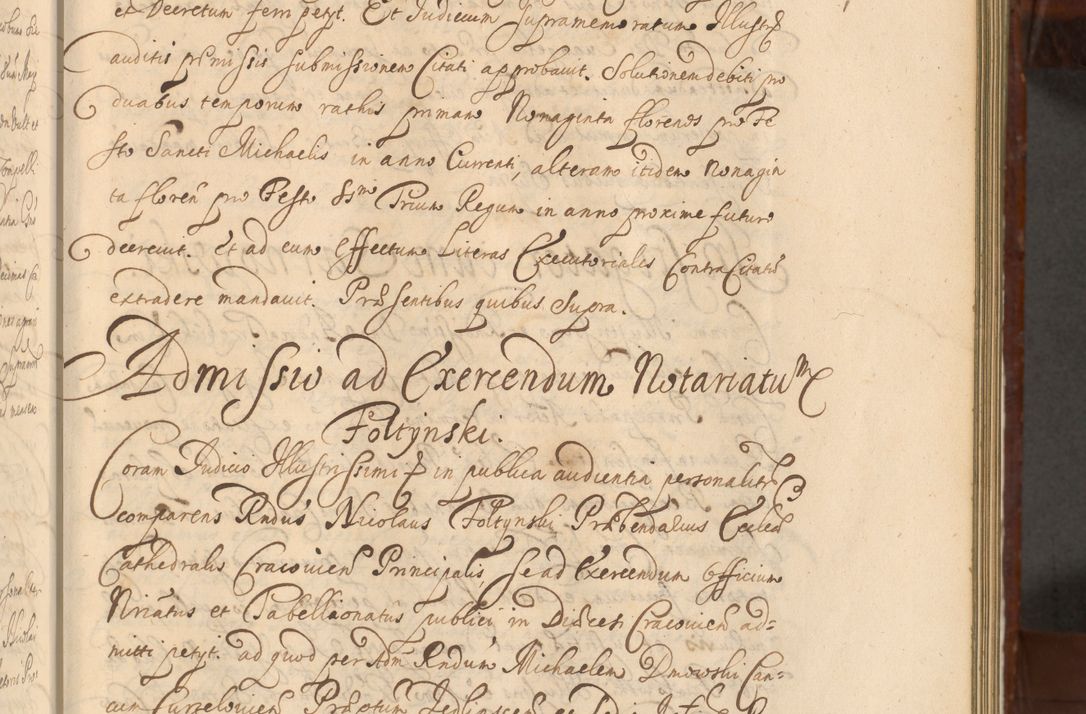 et Decretum ferri petyt. Et Judicium supramemoratum Illustris
auditis præmissis submissionem Citati approbavit. Solutionem debiti pro
duabus temporum rathis primam Nonaginta florenos pro Fe
sto Sancti Michaelis in anno Currenti, alteram itidem Nonagin
ta floreñ pro Festo SSm Trium Regum in anno proxime futuro
decrevit. Et ad eum effectum Literas Executoriales Contra Citatū
extradere mandavit. Præsentibus quibus Supra.
Admissio ad Exercendum Notariatum
Foltynski.
Coram Judicio Illustrissimi in publica audientia personaliter
comparens Rndus Nicolaus Foltynski Præbendarius Eccleæ
Cathedralis Cracovieñ Principalis, se ad Exercendum Officium
Nriatus et Tabellionatus publici in Diæcesi Cracovieñ ad=
mitti petyt. ad quod per Adm Rndum Michaelem Dmowski Can=